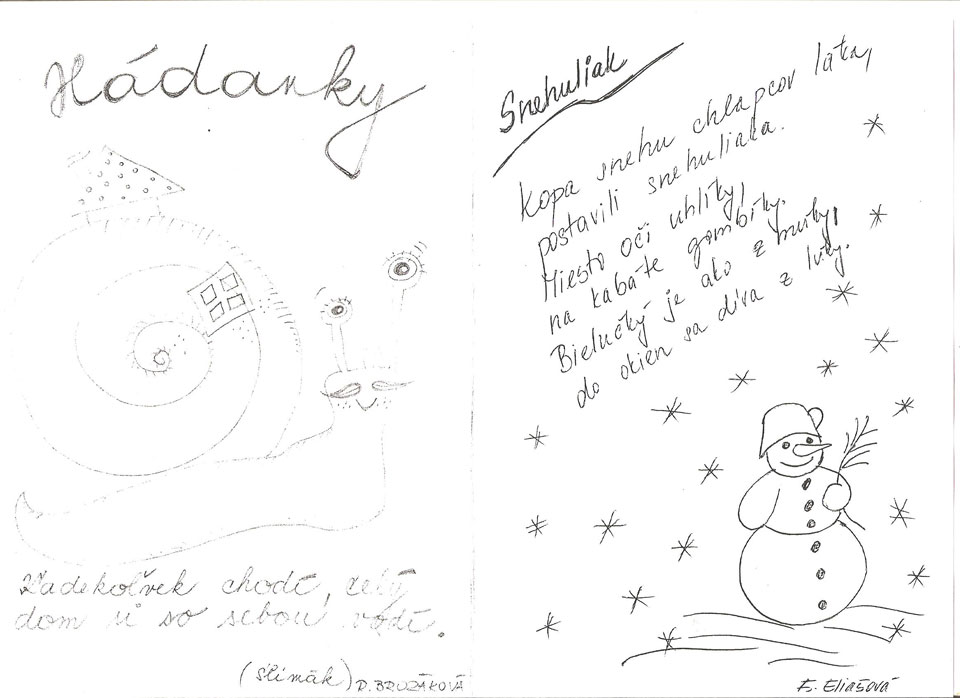 Hádanky
Kadekoľvek chodí, celý
dom si so sebou vodí.
(slimák) D. BRUZÁKOVÁ
Snehuliak
Kopa snehu chlapcov láka,
postavili snehuliaka.
Miesto očí uhlíky,
na kabáte gombíky.
Bielučký je ako z múky,
do okien sa díva z lúky.
E. Eliašová